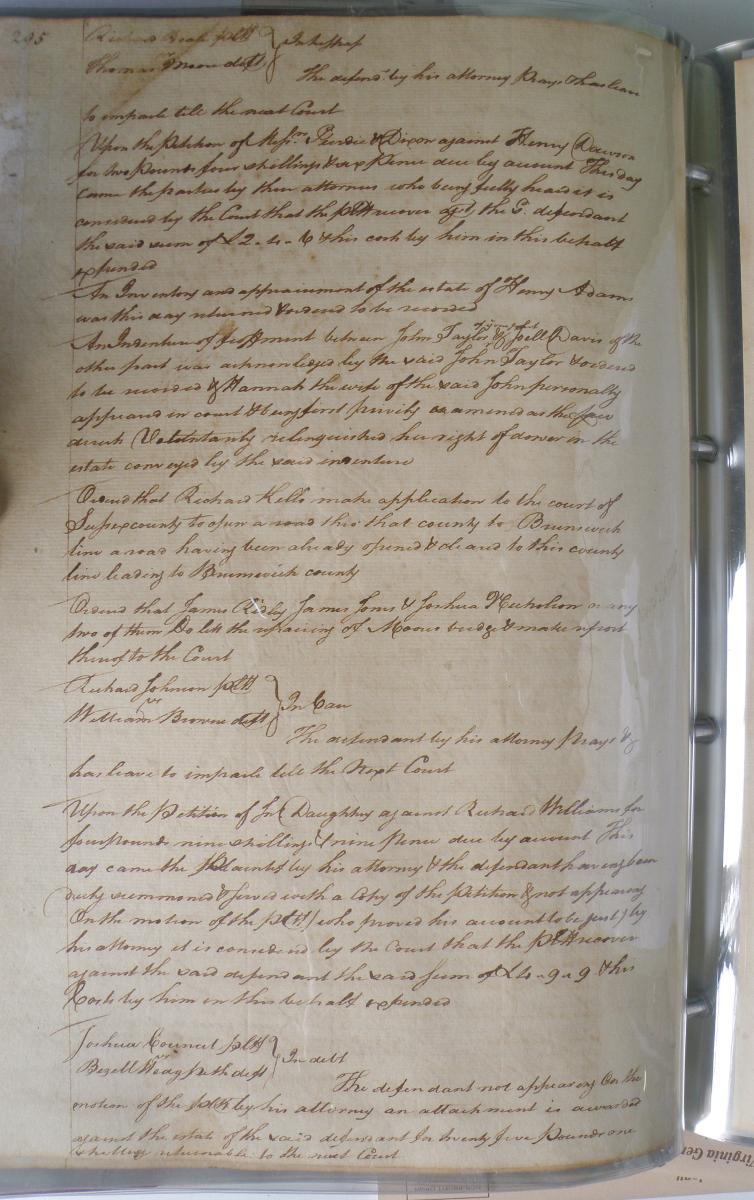 205
Richard pltf
Thomas Moore deft } In trespass
The defend.t by his attorney Prays & has leave
to imparle till the next Court
Upon the Petition of Mess.rs Purdie & Dixon against Henry Dawson
for two Pounds four shillings & six Pence due by account This day
came the parties by their attornies who being fully heard it is
considered by the Court that the pltf recover ag.t the s.d defendant
the said sum of £2-4-6 & his costs by him in this behalf
expended
An Inventory and appraisment of the estate of Henry Adams
was this day returned & ordered to be recorded
An Indenture of feoffment between John Taylor of & Joell Davis of the
other part was acknowledged by the said John Taylor & ordered
to be recorded & Hannah the wife of the said John personally
appeared in court & being first privily examened as the Law
directs Voluntarily relinquished her right of dower in the
estate conveyed by the said indenture
Ordered that Richard Kello make application to the court of
Sussex county to open a road thro that county to Brunswick
line a road having been already opened & cleared to this county
line leading to Brunswick county
Ordered that James Ridley James Jones & Joshua Nicholson or any
two of them Do lett the repairing of Moores bridge & make report
thereof to the Court
Richard Johnson pltf
vs
William Browne deft } In Case
The defendant by his attorney Prays &
has leave to imparle till the Next Court
Upon the Petition of Daughtry against Richard Williams for
four pounds nine shillings & nine Pence due by account This
day came the Plaintif by his attorney & the defendant having been
duly summoned & served with a Copy of the Petition & not appearing
On the motion of the pltf (who proved his account to be just) by
his attorney it is considered by the Court that the Pltf recover
against the said defendant the said sum of £4-9-9 & his
Costs by him in this behalf expended
Joshua Council pltf
vs
deft } In debt
The defendant not appearing On the
motion of the pltf by his attorney an attachment is awarded
against the estate of the said defendant for twenty five Pounds one
shilling returnable to the next Court
irginia Ge